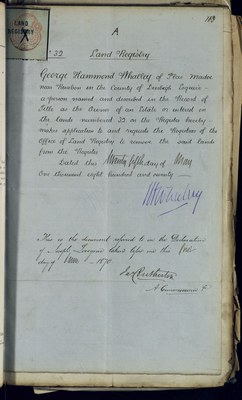 LAND
REGISTRY
A
A
No 32 Land Registry
George Hammond Whalley of Plas Madoc
near Ruabon in the County of Denbigh Esquire
a person named and described in the Record of
Title as the Owner of an Estate or interest in
the Lands numbered 32 on the Register hereby
makes application to and requests the Registrar of the
Office of Land Registry to remove the said Lands
from the Register
Dated this twenty fifth day of May
One thousand eight hundred and seventy
GHWhalley
This is the document referred to in the Declaration
of
day of June 1870
A Commissioner &c